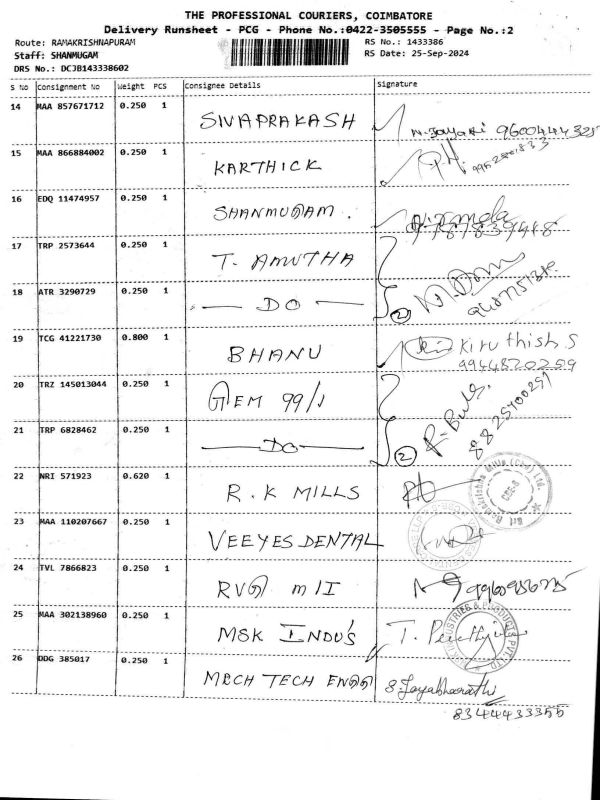 THE PROFESSIONAL COURIERS, COIMBATORE
Delivery Runsheet - PCG - Phone No.:0422-3505555 - Page No.:2
Route: RAMAKRISHNAPURAM RS No.: 1433386
Staff: SHANMUGAM RS Date: 25-Sep-2024
DRS No.: DCJB143338602
S No Consignment No Weight PCS Consignee Details Signature
14 MAA 857671712 0.250 1 SIVAPRAKASH
15 MAA 866884002 0.250 1 KARTHICK
16 EDQ 11474957 0.250 1 SHANMUGAM.
17 TRP 2573644 0.250 1 T. AMUTHA
18 ATR 3290729 0.250 1 — DO — 2
19 TCG 41221730 0.800 1 BHANU Kiruthish S
9944820259
20 TRZ 145013044 0.250 1 GEM 99/1
21 TRP 6828462 0.250 1 — DO — 2
22 NRI 571923 0.620 1 R.K MILLS
23 MAA 110207667 0.250 1 VEEYES DENTAL
24 TVL 7866823 0.250 1 RVG M/I
25 MAA 302138960 0.250 1 MSK INDU'S
26 DDG 385017 0.250 1 MECH TECH ENGG S. Jayabharathi
8344433355